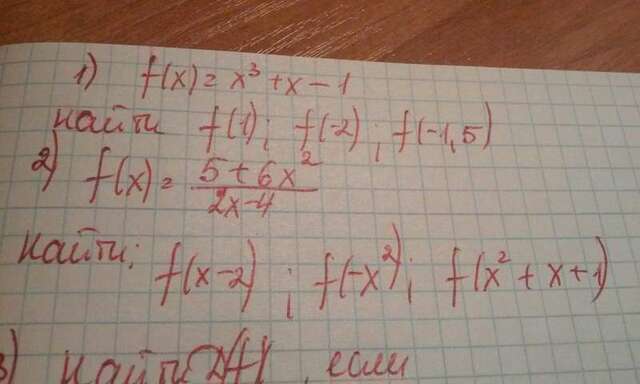 1) f(x) = x³ + x - 1
найти f(1); f(-2); f(-1,5)
2) f(x) = \frac{5+6x²}{2x-4}
найти; f(x-2); f(-x²); f(x² + x + 1)
3) найти если